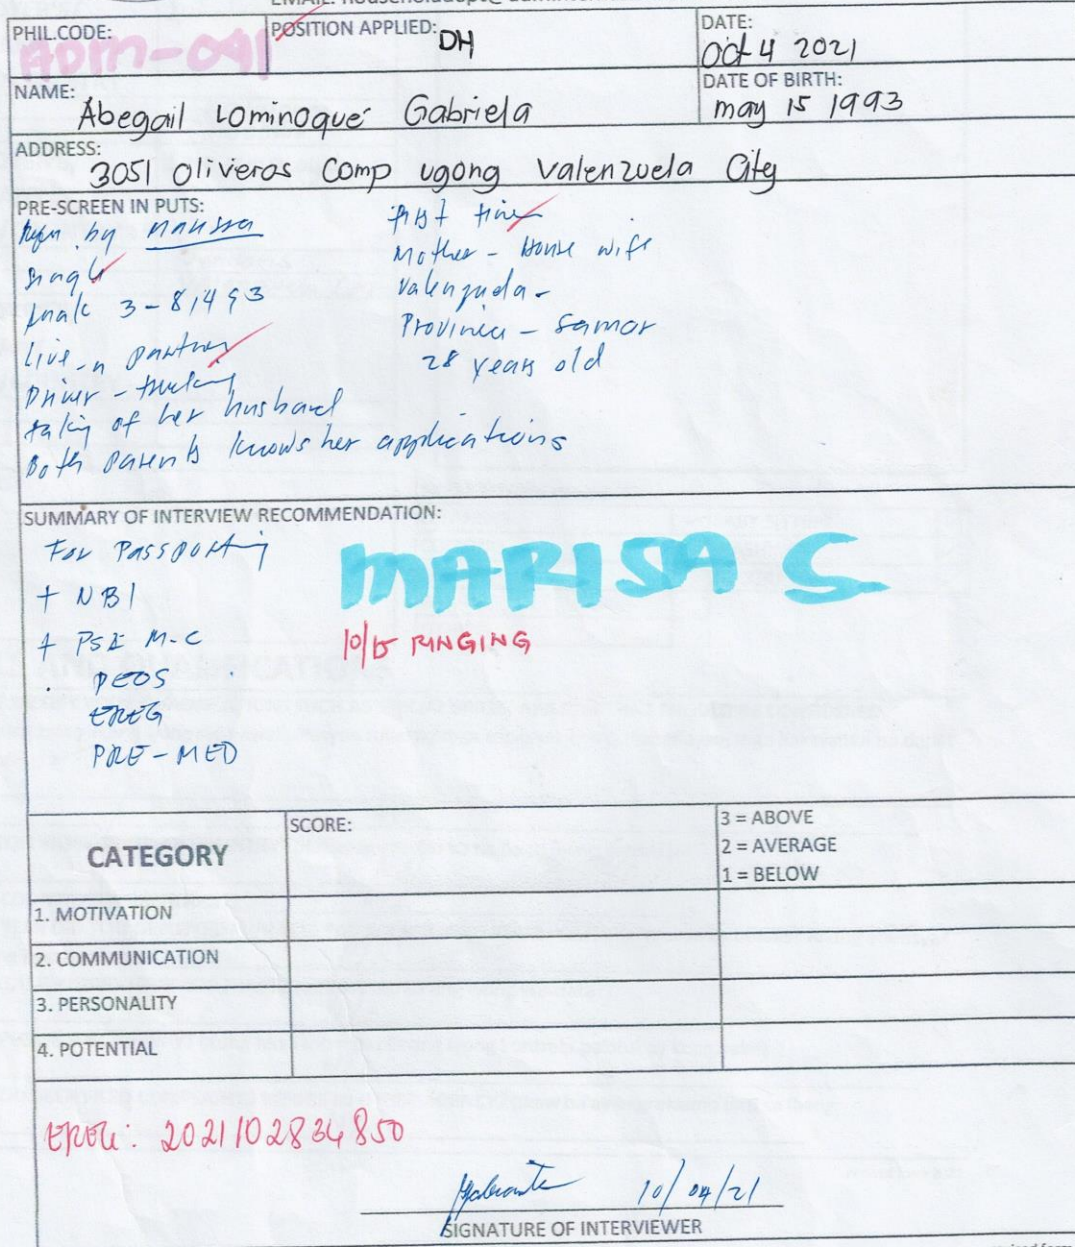 PHIL.CODE: ADM-091
POSITION APPLIED: DH
DATE: Oct 4 2021
NAME: Abegail Lominoque Gabriela
DATE OF BIRTH: may 15 1993
ADDRESS: 3051 Oliveros Comp ugong Valenzuela City
PRE-SCREEN IN PUTS:
by
Single
3-8,4,93
live-n partner
Driver - trucking
taking of her husband
Both Parents knows her applications
first time
Mother - House wife
Valenzuela-
Province - Samar
28 years old
SUMMARY OF INTERVIEW RECOMMENDATION:
For Passporting
+ NBI
+ PSA M-C
PEOS
EREG
PRE-MED
MARISA S
RINGING
CATEGORY
SCORE:
3 = ABOVE
2 = AVERAGE
1 = BELOW
1. MOTIVATION
2. COMMUNICATION
3. PERSONALITY
4. POTENTIAL
EREG: 2021102834850
10/04/21
SIGNATURE OF INTERVIEWER